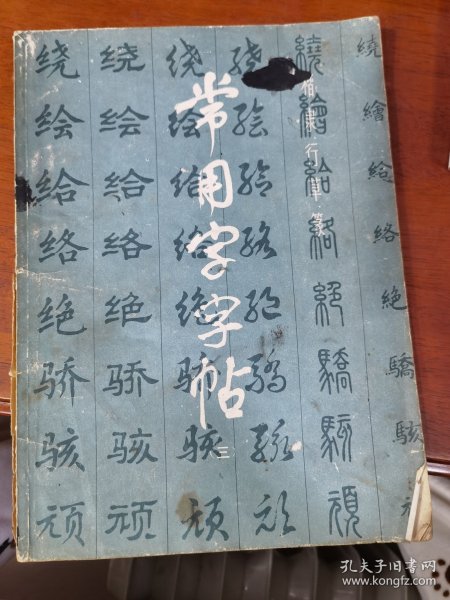 常用字字帖
三
楷隶行草篆
绕绘给络绝骄骇顽
绕绘给络绝骄骇顽
绕绘给络绝骄骇顽
绕绘给络绝骄骇顽
繞繪給絡絕驕駭頑
繞繪給絡絕驕駭
孔夫子旧书网
www.kongfz.com